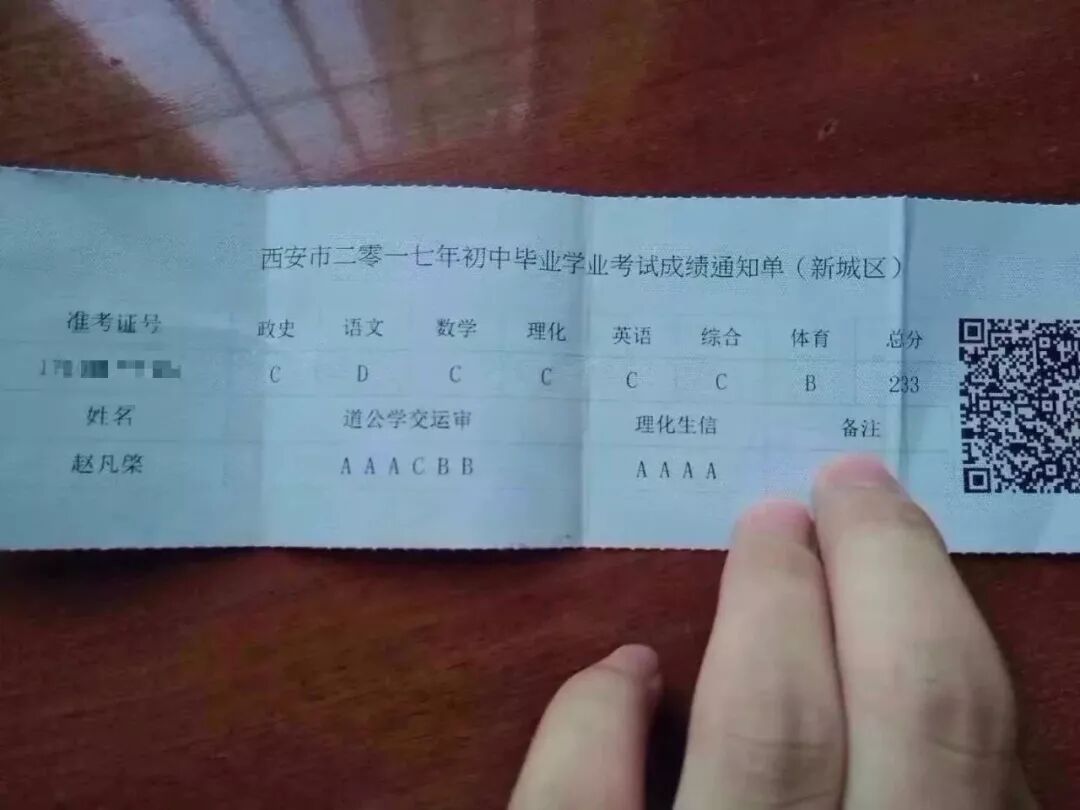 西安市二零一七年初中毕业学业考试成绩通知单（新城区）
准考证号 政史 语文 数学 理化 英语 综合 体育 总分
C D C C C C B 233
姓名 道公学交运审 理化生信 备注
赵凡棨 A A A C B B A A A A